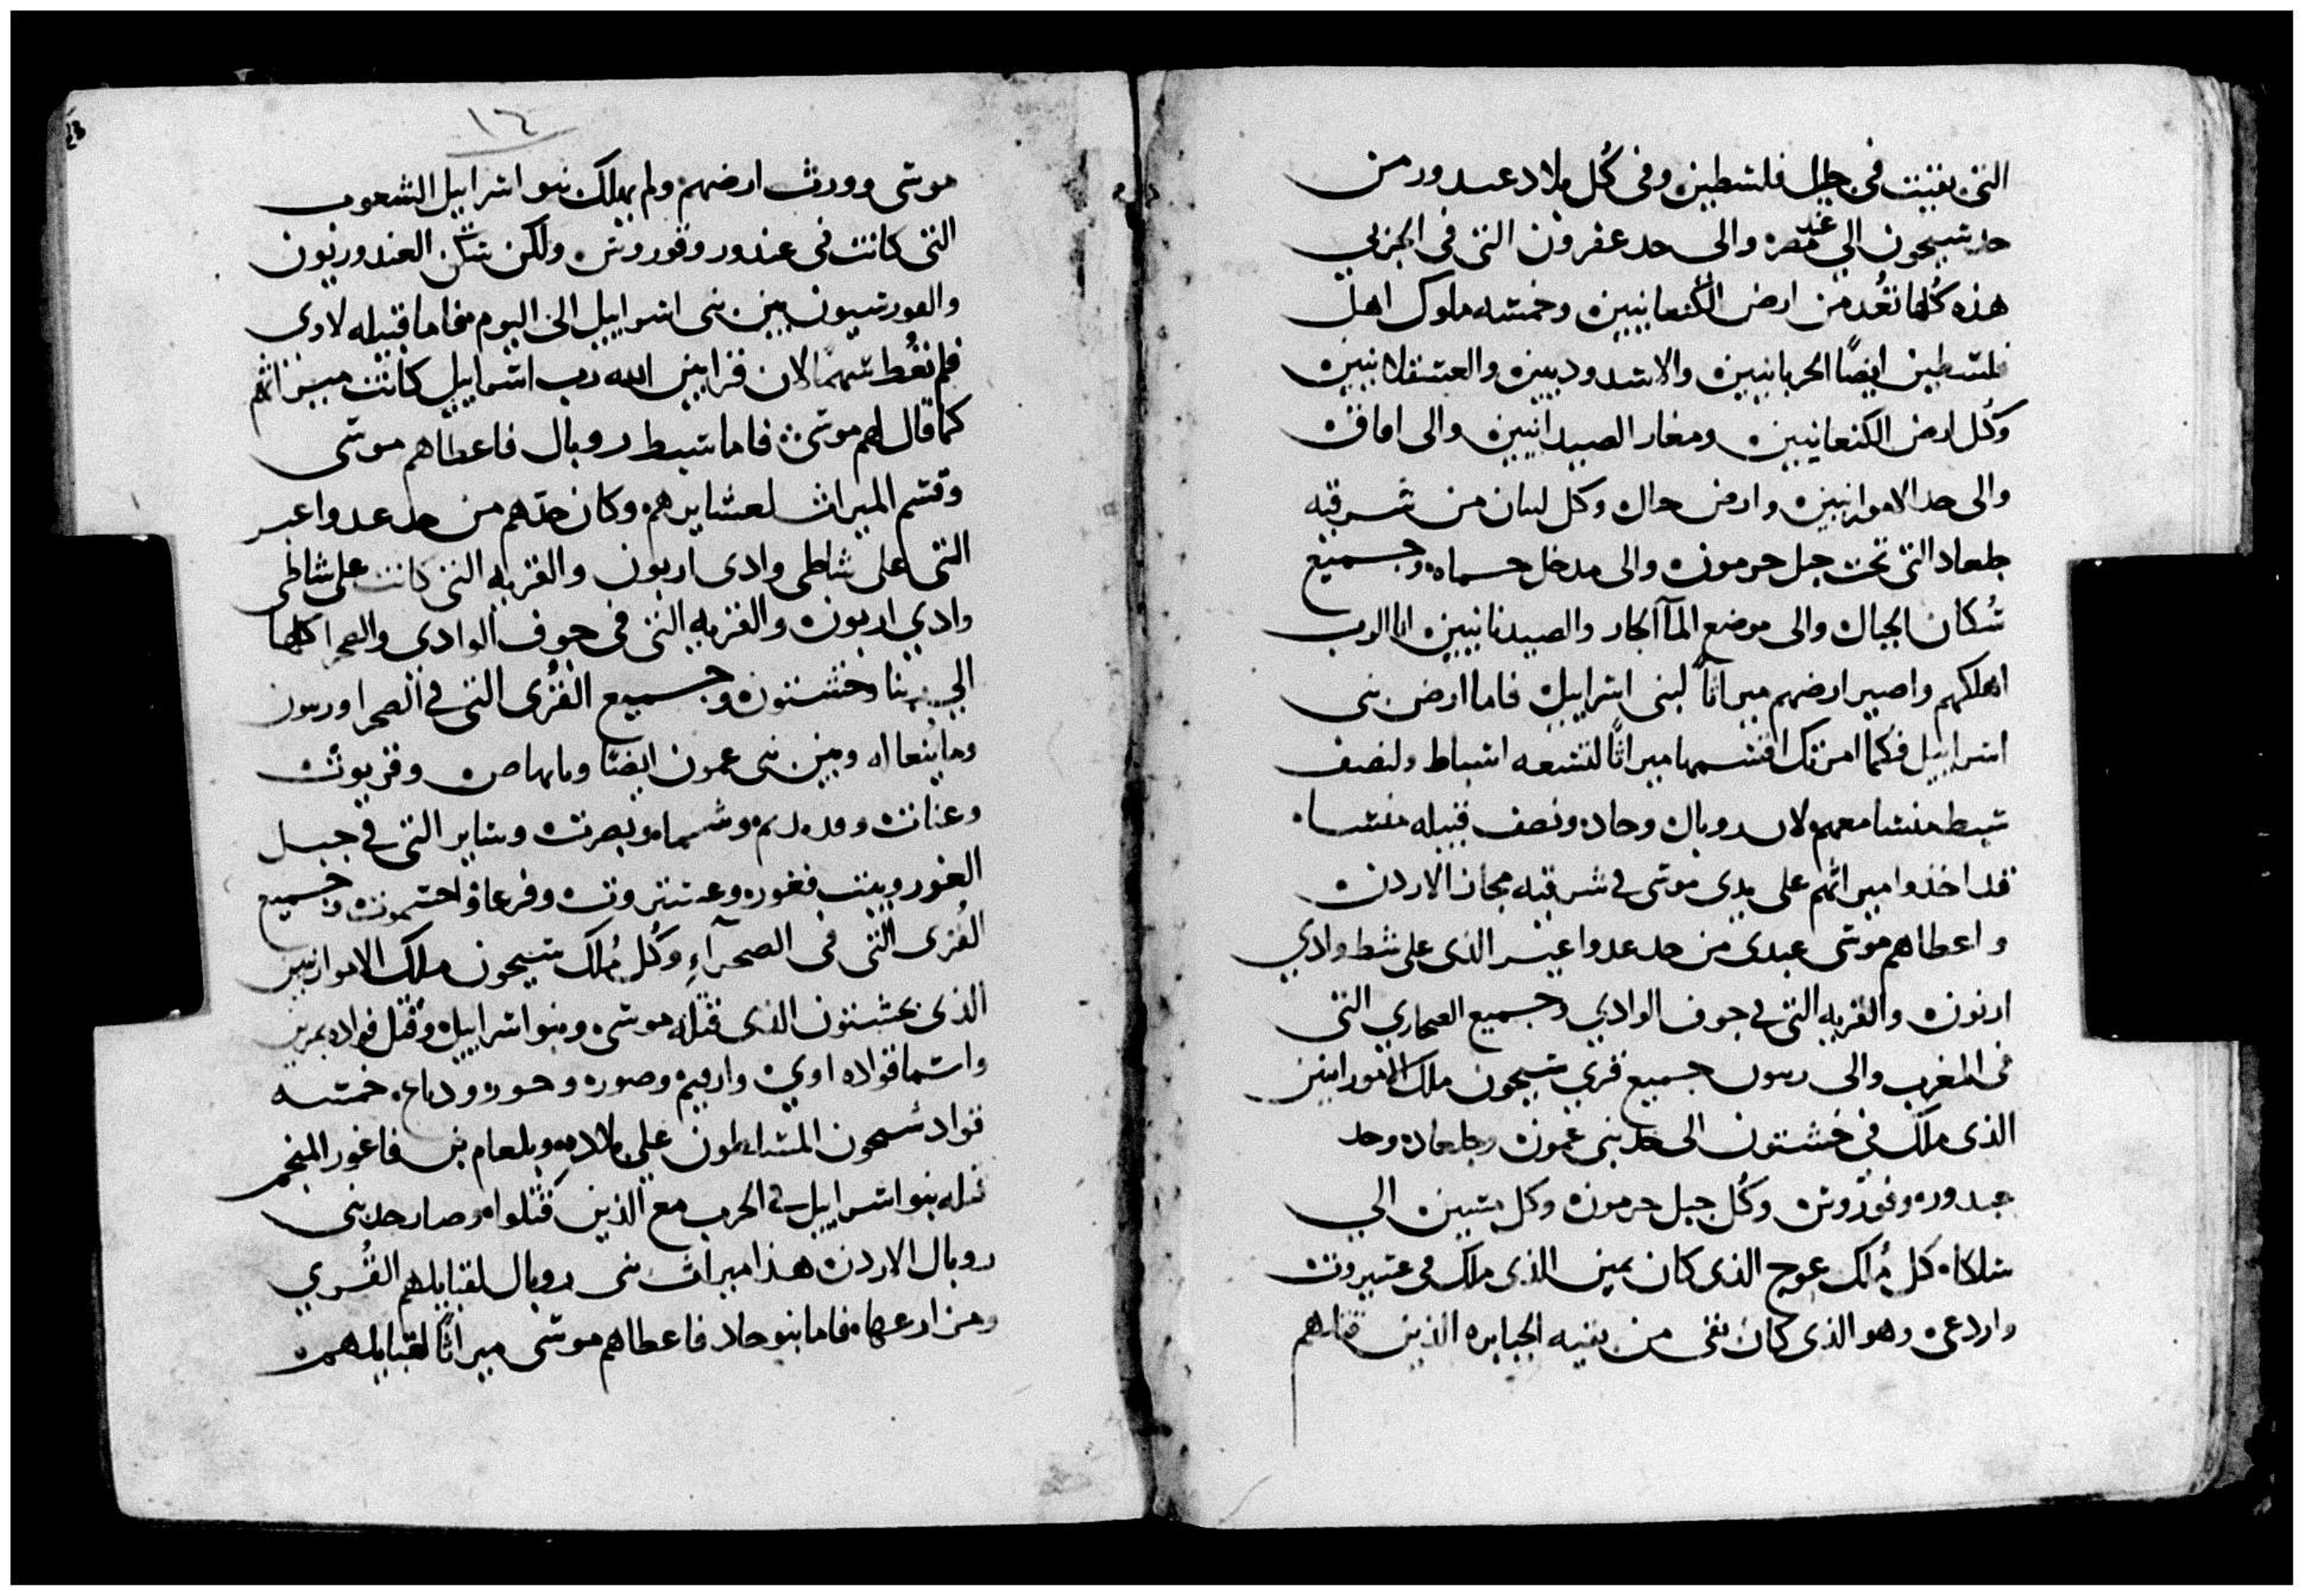 التى بقيت فى جليل فلسطين وفى كل بلاد عىدور من
حد سيحون الي عند مصر والى حد عفرون التى فى الجربي
هذه كُلها تعُد من ارض الكنعانيين وخمسه ملوك اهل
فلسطين ايضًا الحربانيين والاسدوديين والعسقلانيين
وكُل ارض الكنعانيين ومغار الصيدانيين والى افاق
والى حد الاموارنيين وارض حال وكل لبنان من شرقيه
جلعاد التى تحت جبل حرمون والى مدخل حماه وجميع
سُكان الجبال والى موضع المآ الحار والصيدنانيين انا الرب
اهلكهم واصير ارضهم ميراثاً لبنى اسراييل فاما ارض بنى
اسراييل فكما امرتك اقسمها ميراثًا لتسعه اسباط ولنصف
سبط منسا معهم لان روبال وجاد ونصف قبيله منسا
قد اخذوا ميراثهم على يدى موسى في شرقيه مجاز الاردن
واعطاهم موسى عبدى من حد عدواعير الذى على شط وادي
ارنون والقريه التى في جوف الوادي وجميع الصحاري التى
فى المغرب والى ريبون جميع قري سيحون ملك الامورانيين
الذى ملك في خشبون الى حد بنى عمون وجلعاد وحد
جدور وقوروس وكُل جبل حرمون وكل متنين الي
سلكا كل مُلك عوج الذى كان يمين الذى ملك فى عستيروت
واردعى وهو الذى كان بقى من بقيه الجبابره الذين قتلهم
١٤
موسى وورث ارضهم ولم يهلك بنو اسراييل الشعوب
التى كانت فى عندور وقوروس ولكن سكن العندوريون
والقورسيون بين بنى اسراييل الى اليوم فاما قبيله لاوى
فلم تعُط سهمًا لان قرابين الله رب اسراييل كانت ميراثهم
كما قال لهم موسى فاما سبط روبال فاعطاهم موسى
وقسم الميراث لعشايرهم وكان حدهم من حد عدواعير
التى على شاطى وادى ارنون والقريه التى كانت على شاطى
وادي ارنون والقريه التى فى جوف الوادى والصحرا كلها
الي وخشبون وجميع القُرى التى في الصحرا وريبون
ومن بنى عمون ايضًا ومايهاص وقريوت
وعنات وشماه وبصرت وساير التى في جبل
الغور وبيت فغور وعستروت وفرعا واحسمون وجميع
القُرى التى فى الصحرآءِ وكُل مُلك سيحون ملك الاموارنيين
الذى بحشبون الذى قتله موسى وبنو اسراييل وقتل قواده
واسما قواده اوي وارقيم وصور وحور ورباع خمسه
قواد سيحون المسلطون علي بلاده وبلعام بن فاغور المنجم
قتله بنو اسراييل في الحرب مع الذين قتلوا وصار حد بنى
روبال الاردن هذا ميراث بنى روبال لقبايلهم القُري
ومزارعها فاما بنو جاد فاعطاهم موسى ميراثًا لقبايلهم